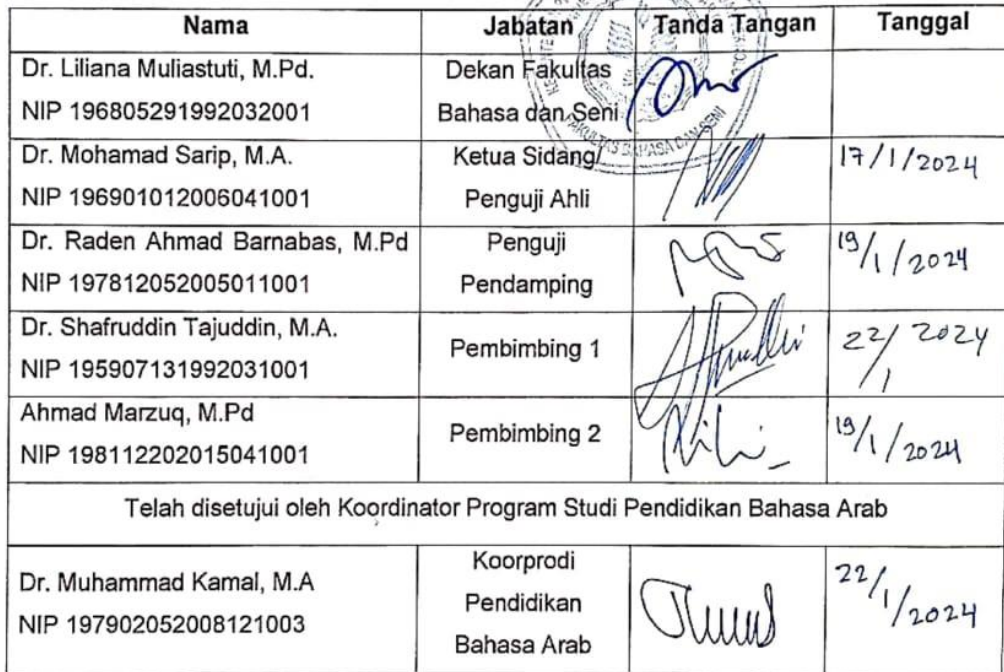 Nama Jabatan Tanda Tangan Tanggal
Dr. Liliana Muliastuti, M.Pd.
NIP 196805291992032001
Dekan Fakultas
Bahasa dan Seni
FAKULTAS BAHASA DAN SENI
Dr. Mohamad Sarip, M.A.
NIP 196901012006041001
Ketua Sidang/
Penguji Ahli
17/1/2024
Dr. Raden Ahmad Barnabas, M.Pd
NIP 197812052005011001
Penguji
Pendamping
19/1/2024
Dr. Shafruddin Tajuddin, M.A.
NIP 195907131992031001
Pembimbing 1
22/1 2024
Ahmad Marzuq, M.Pd
NIP 198112202015041001
Pembimbing 2
19/1/2024
Telah disetujui oleh Koordinator Program Studi Pendidikan Bahasa Arab
Dr. Muhammad Kamal, M.A
NIP 197902052008121003
Koorprodi
Pendidikan
Bahasa Arab
22/1/2024